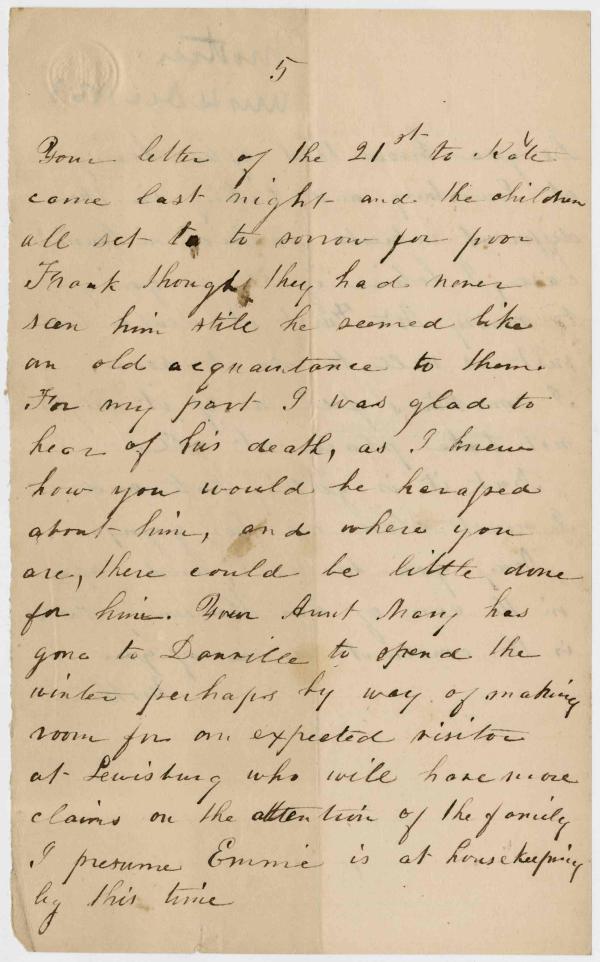 5
Your letter of the 21st to Kate
came last night and the children
all set to to sorrow for poor
Frank though they had never
seen him still he seemed like
an old acquaintance to them.
For my part I was glad to
hear of his death, as I knew
how you would be harassed
about him, and where you
are, there could be little done
for him. Your Aunt Mary has
gone to Danville to spend the
winter perhaps by way of making
room for an expected visitor
at Lewisburg who will have more
claims on the attention of the family
I presume Emmie is at housekeeping
by this time